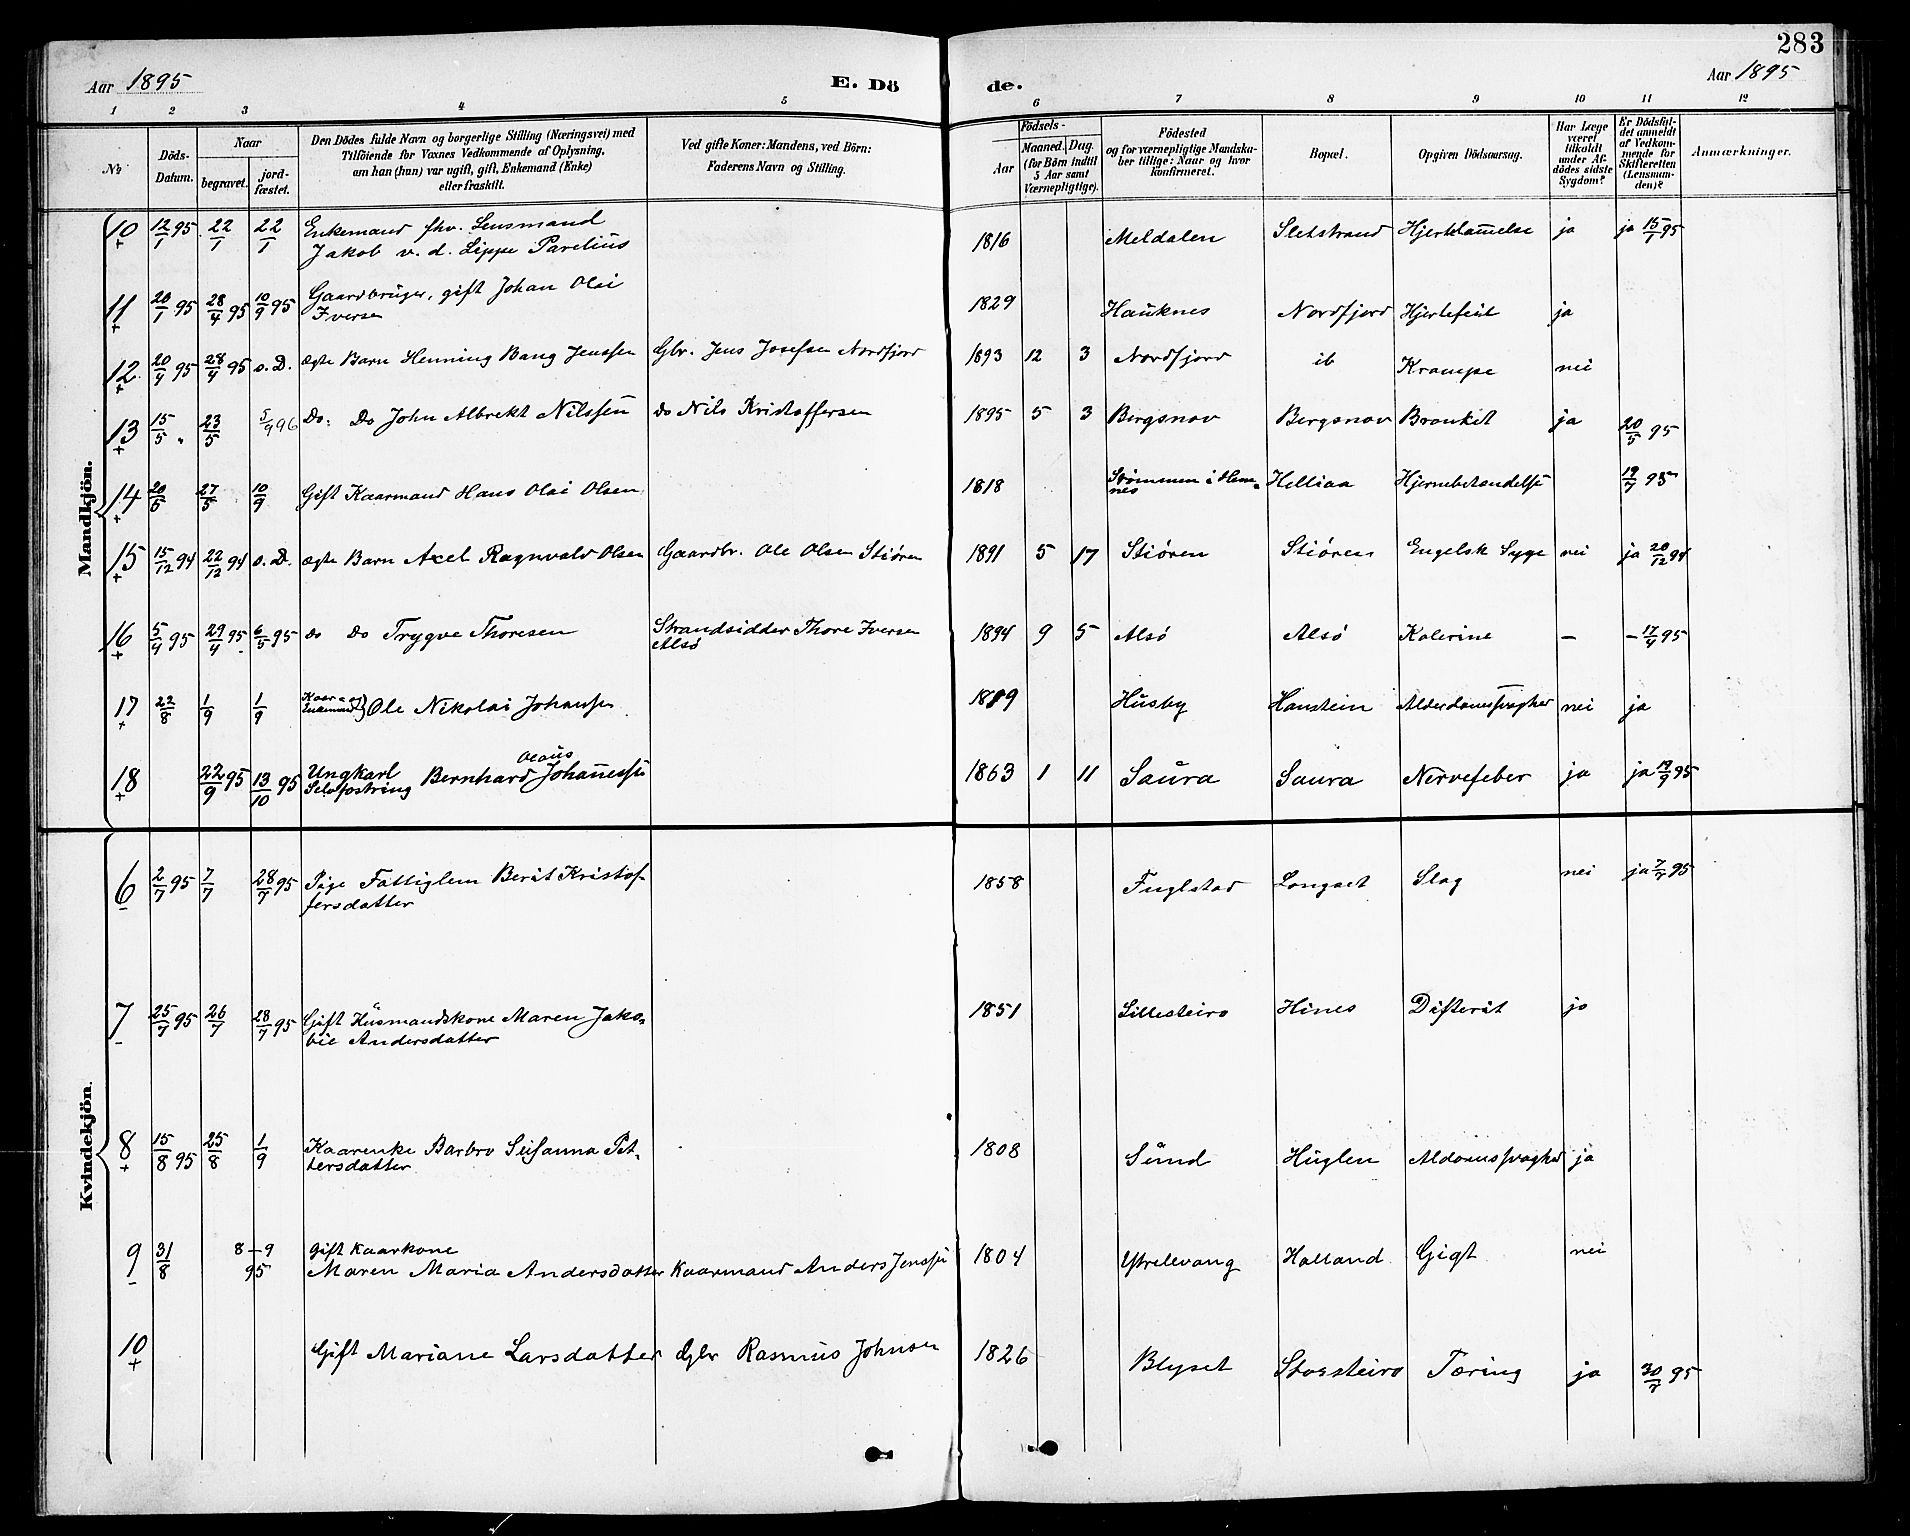 283
Aar 1895 E. Dö de. Aar 1895
1 2 3 4 5 6 7 8 9 10 11 12
No Döds-Datum. Naar begravet. jord-fæstet. Den Dödes fulde Navn og borgerlige Stilling (Næringsvei) med Tilföiende for Voxnes Vedkommende af Oplysning, om han (hun) var ugift, gift, Enkemand (Enke) eller fraskilt. Ved gifte Koner: Mandens, ved Börn: Faderens Navn og Stilling. Födsels- Aar Maaned. Dag. (for Börn indtil 5 Aar samt Værnepligtige). Födested og for værnepligtige Mandskaber tillige: Naar og hvor konfirmeret. Bopæl. Opgiven Dödsaarsag. Har Læge været tilkaldt under Afdödes sidste Sygdom? Er Dödsfaldet anmeldt af Vedkommende for Skifteretten (Lensmanden)? Anmærkninger.
Mandkjön.
10 + 12/1 95 22/1 22/1 Enkemand fhv. Lensmand 1816 Meldalen Sletstrand Hjertelammelse ja ja 15/1 95
Jakob v. d. Lippe Parelius
11 + 20/1 95 28/4 95 10/9 95 Gaardbruger, gift Johan Olai 1829 Hauknes Nordfjord Hjertefeil ja
Iversen
12 + 20/4 95 28/4 95 s. D. ægte Barn Henning Bang Jenssen Gbr. Jens Josefsen Nordfjord 1893 12 3 Nordfjord ib Krampe nei
13 + 15/5 " 23/5 5/9 96 Do: Do John Albrekt Nilssen do Nils Kristoffersen 1895 5 3 Bergsnov Bergsnov Bronkit ja 20/5 95
14 + 20/5 27/5 10/9 Gift Kaarmand Hans Olai Olsen 1818 Strömmen i Hem= Helliaa Hjernebetændelse 19/7 95
nes
15 + 15/12 94 22/12 94 s. D. ægte Barn Axel Ragnvald Olsen Gaardbr. Ole Olsen Stiören 1891 5 17 Stiören Stiören Engelsk Syge nei ja 20/12 94
16 + 5/4 95 29/4 95 6/5 95 do do Trygve Thoresen Strandsidder Thore Iversen 1894 9 5 Alsö Alsö Kolerine – – 17/4 95
Alsö
17 + 22/8 1/9 1/9 Kaar- og Enkemand Ole Nikolai Johansen 1819 Husby Hanstein Alderdomssvaghed nei ja
Olaus
18 + 22/9 95 13/10 95 Ungkarl Bernhard Johannessen 1863 1 11 Saura Saura Nervefeber ja ja 19/9 95
Selvfostring
Kvindekjön.
6 – 2/7 95 7/7 28/7 95 Pige Fattiglem Berit Kristof- 1858 Fuglstad Longset Slag nei ja 7/7 95
fersdatter
7 – 25/7 95 26/7 28/7 95 Gift Husmandskone Maren Jako- 1851 Lillesteiro Hines Difterit ja
bie Andersdatter
8 + 15/8 95 25/8 1/9 Kaarenke Barbro Susanna Pet- 1808 Sund Huglen Aldomssvaghed ja
tersdatter
9 – 31/8 8–9 95 gift Kaarkone
Maren Maria Andersdatter Kaarmand Anders Jenssen 1804 Ytrelevang Halland Gigt nei
10 + Gift Mariane Larsdatter Gbr Rasmus Johnsen 1826 Blyset Storsteiro Tæring ja 30/7 95